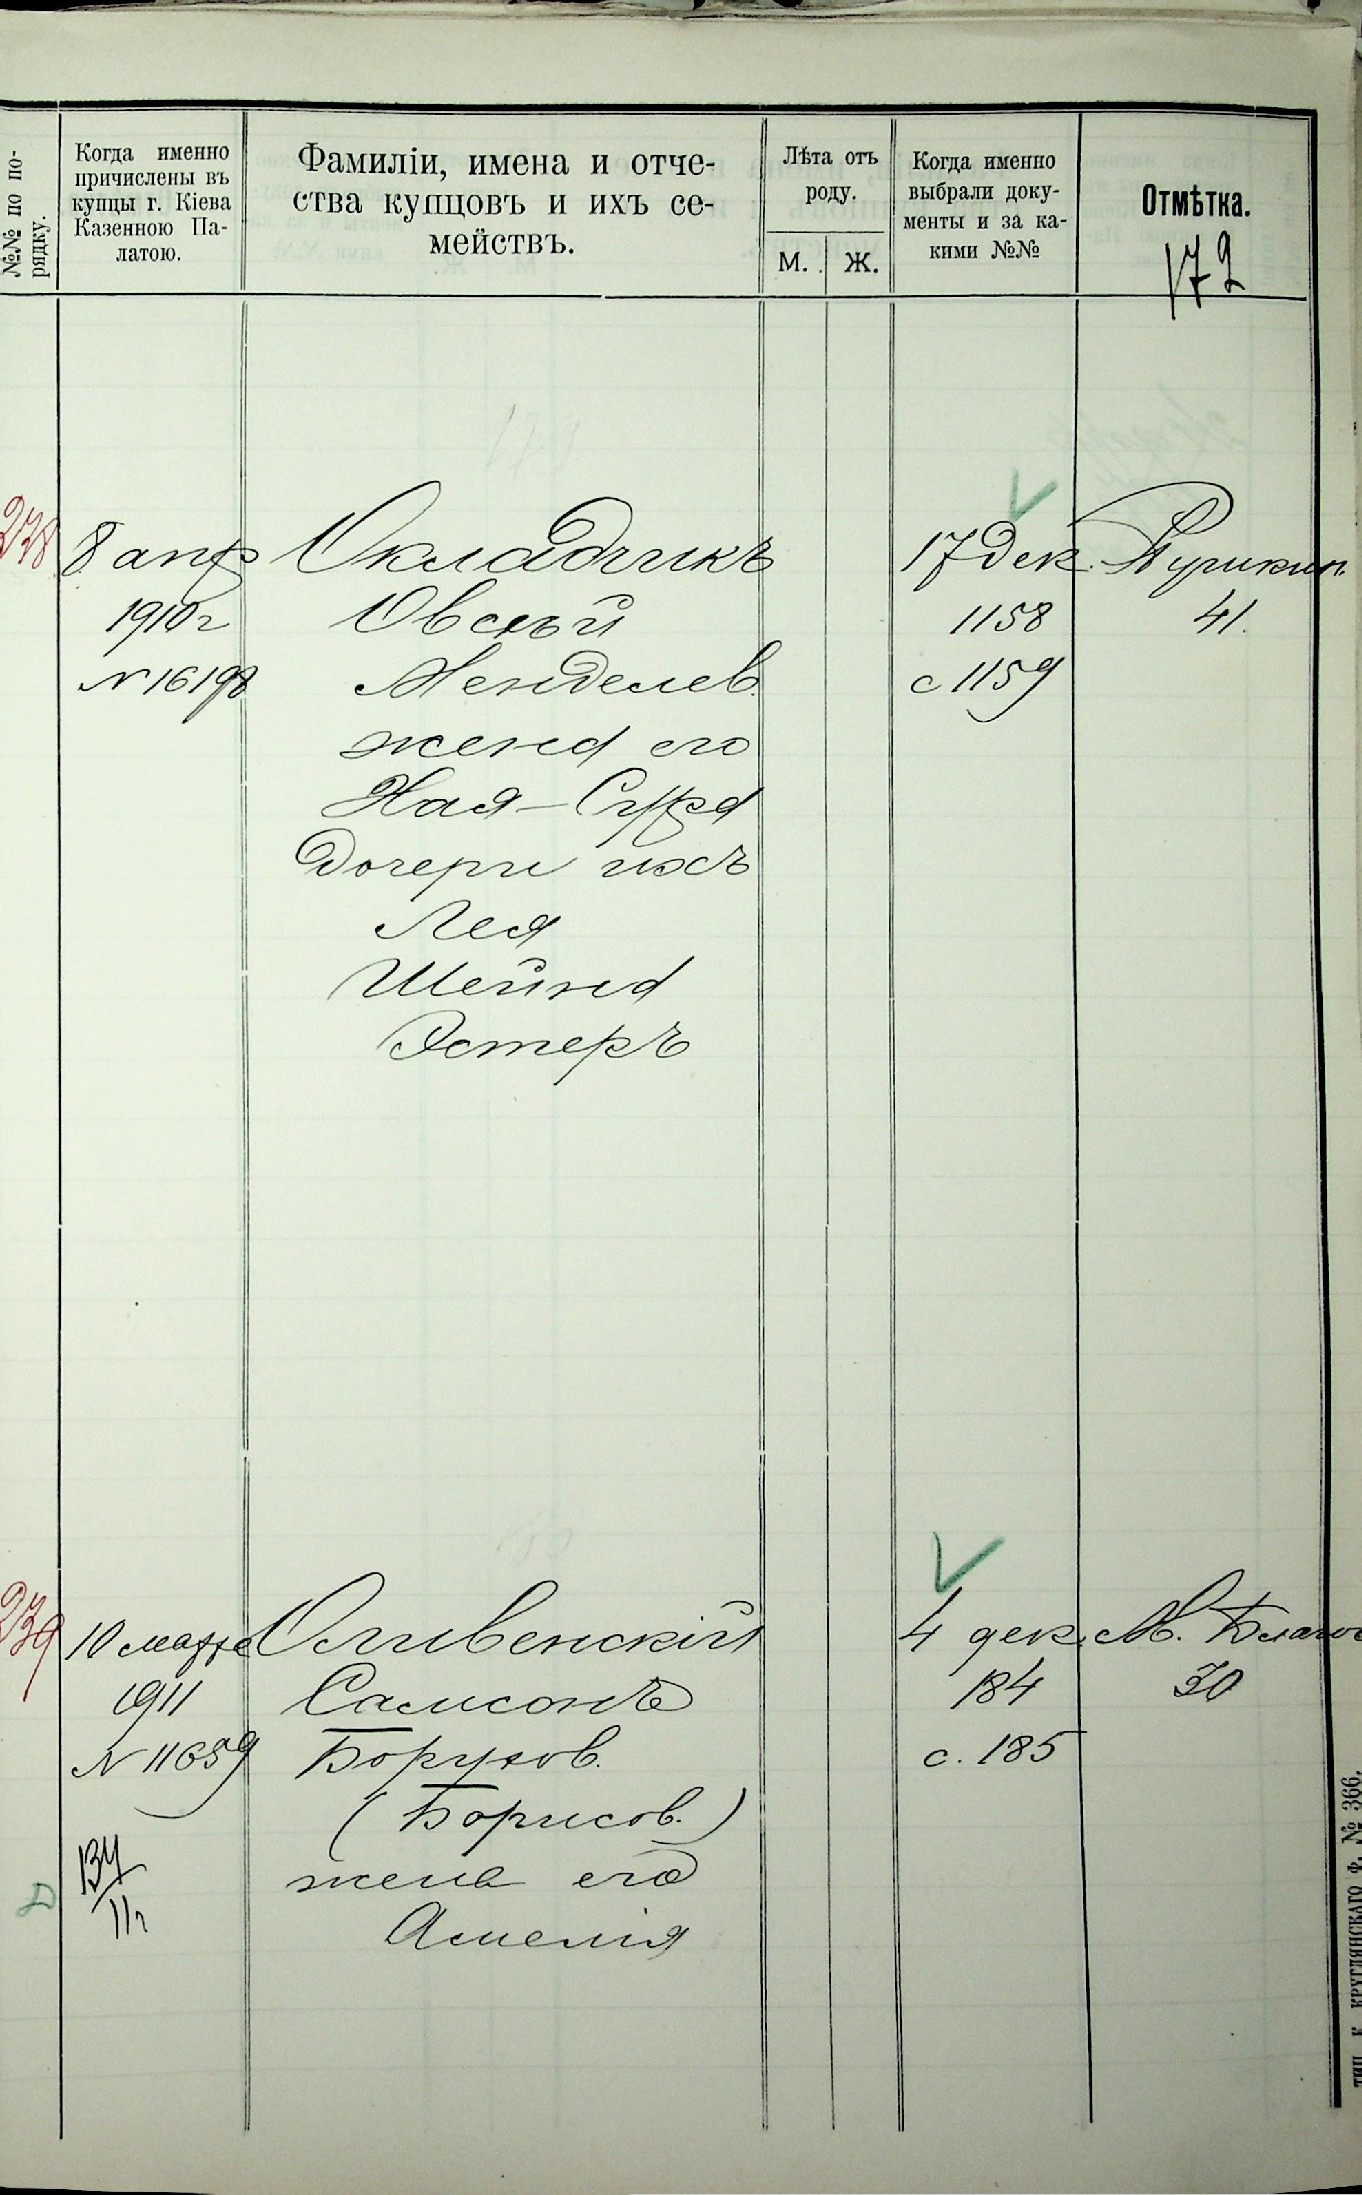 №№ по по-
рядку.
Когда именно
причислены въ
купцы г. Кіева
Казенною Па-
латою.
Фамиліи, имена и отче-
ства купцовъ и ихъ се-
мействъ.
Лѣта отъ
роду.
М.
Ж.
Когда именно
выбрали доку-
менты и за ка-
кими №№
Отмѣтка.
172
238
8 апр
1910 г
N 16198
Окладчикъ
Овсѣй
Менделев.
жена его
Хая-Сура
Дочери ихъ
Лея
Шейна
Эстеръ
17 Дек.
1158
с 1159
41.
239
10 марта
1911
N 11659
134/11 г
Оливенскій
Самсонъ
Борухов.
(Борисов.)
жена его
Амелія
4 дек.
184
с. 185
М. Благов
30
ТИП. К. КРУГЛЯНСКАГО Ф. № 366.